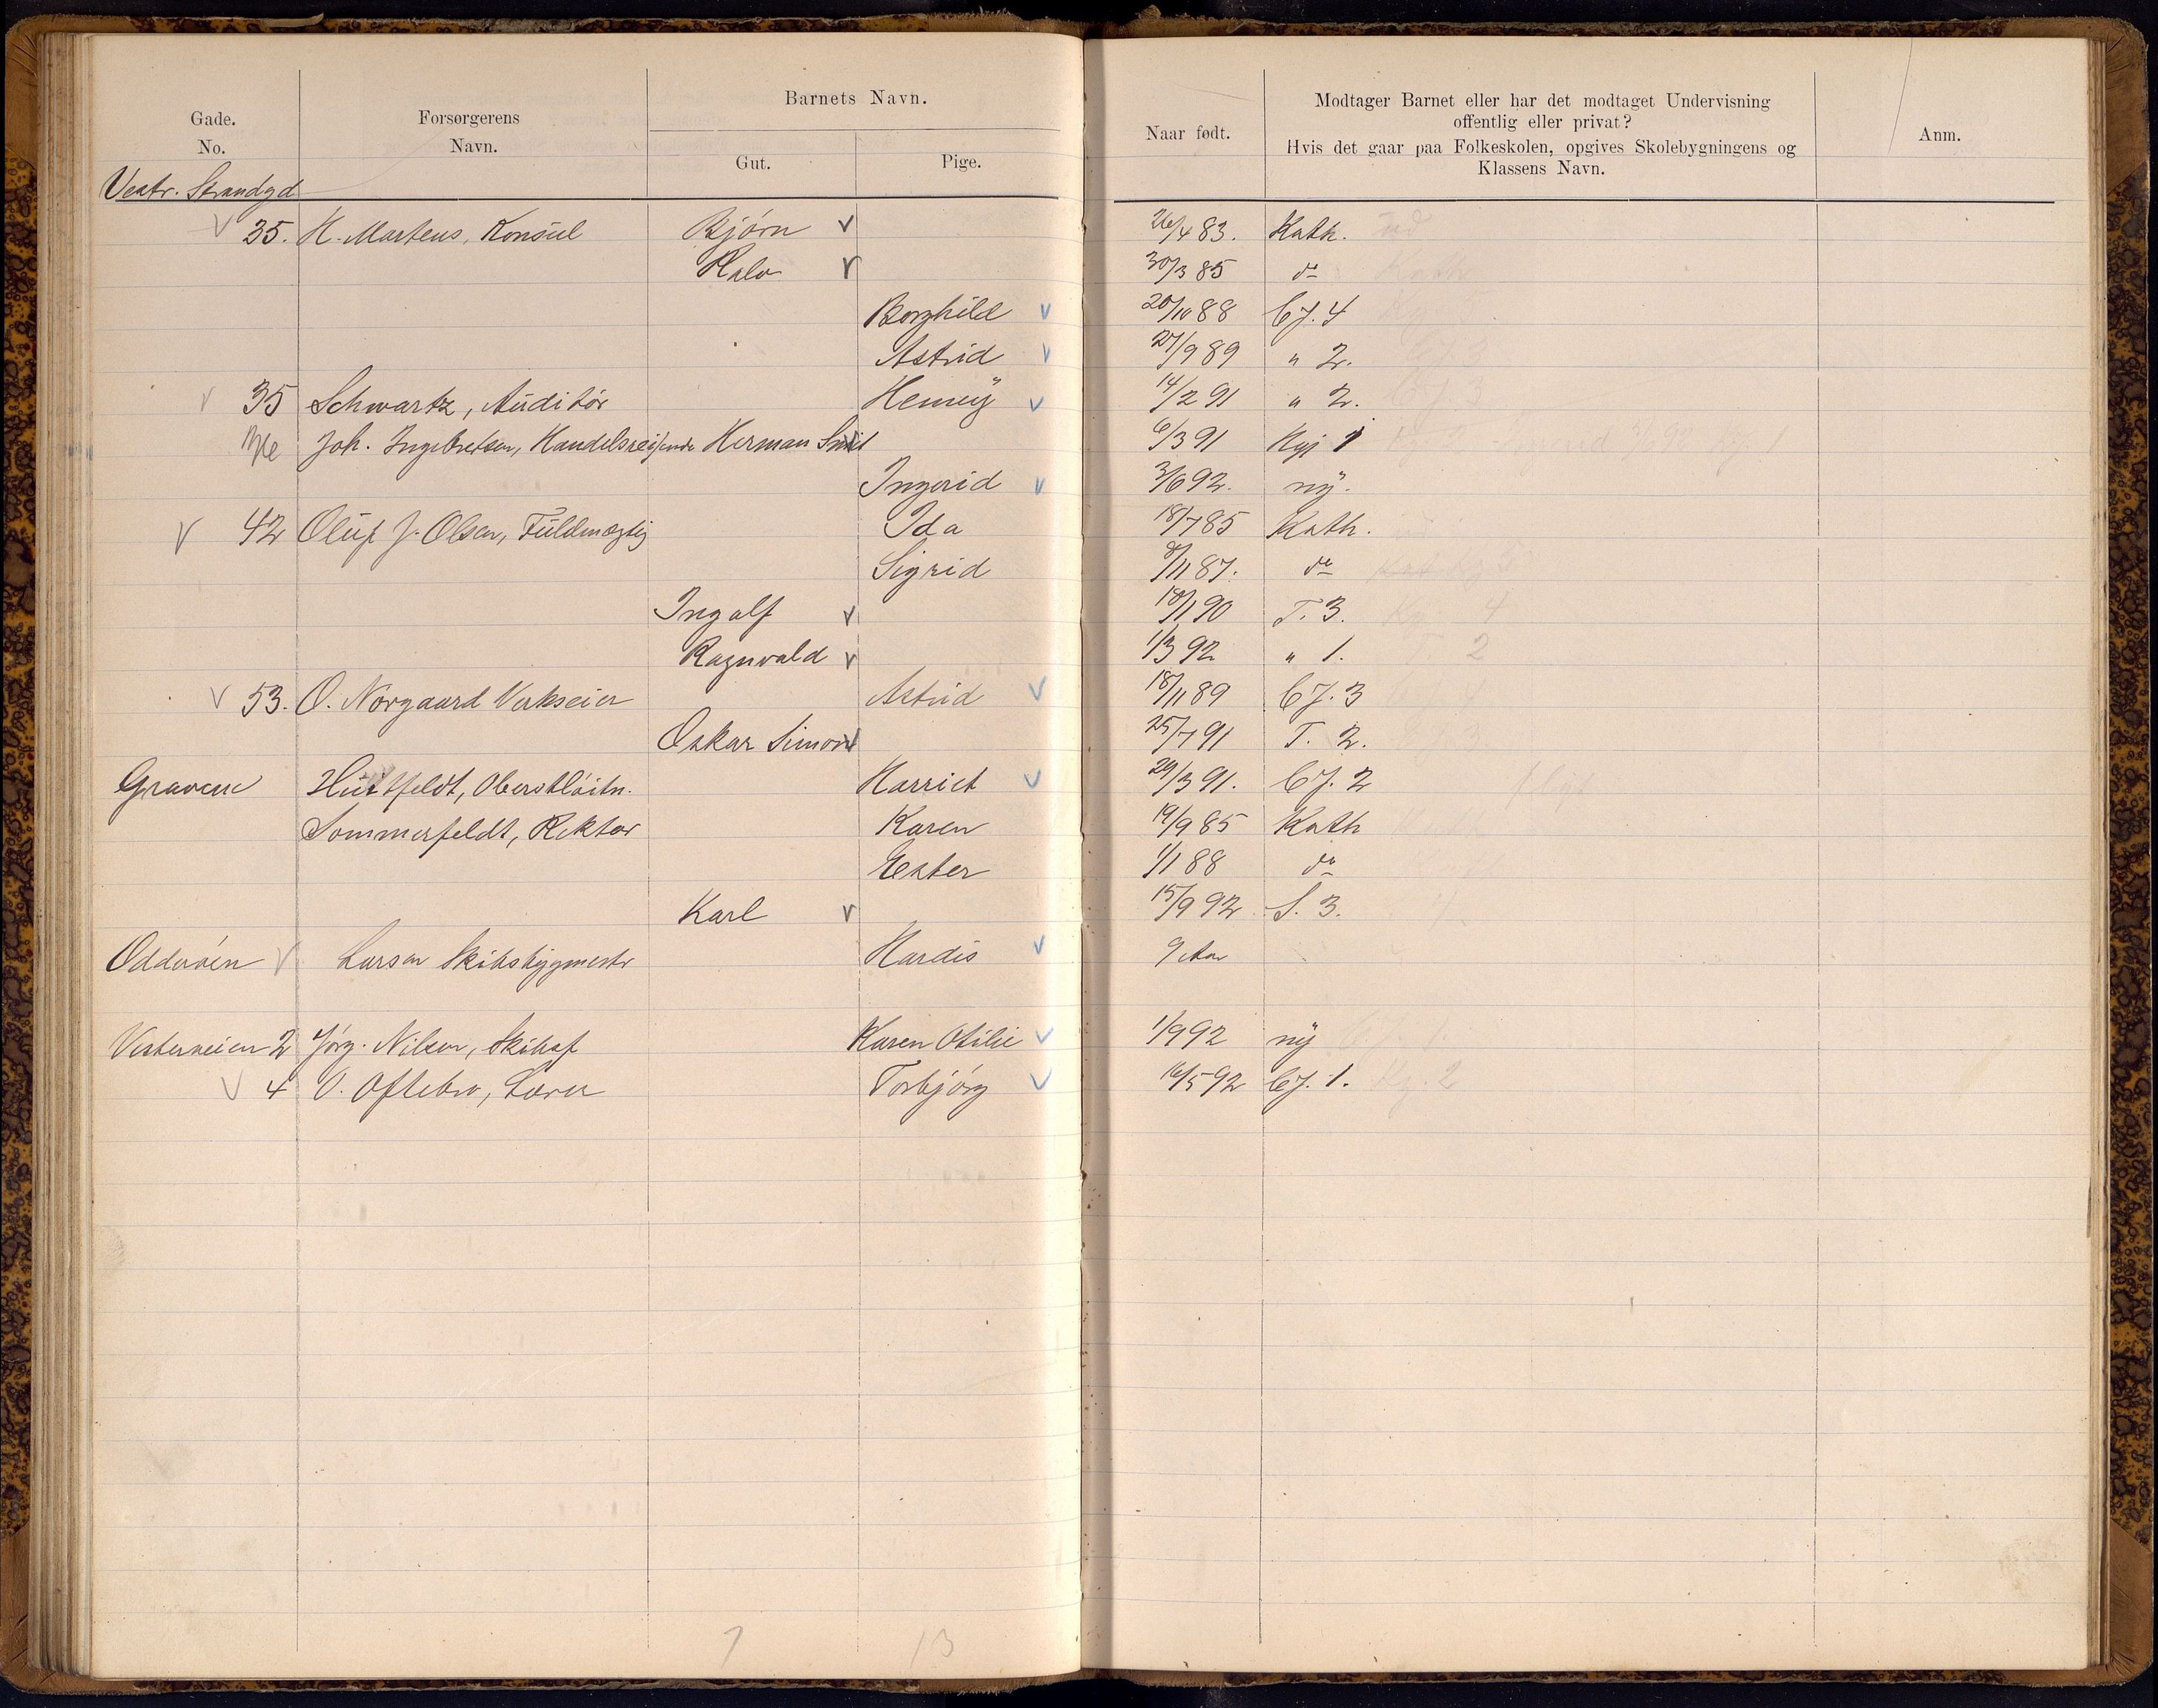 Gade.
No.
Forsørgerens
Navn.
Barnets Navn.
Gut.
Pige.
Naar født.
Modtager Barnet eller har det modtaget Undervisning
offentlig eller privat?
Hvis det gaar paa Folkeskolen, opgives Skolebygningens og
Klassens Navn.
Anm.
Vestr. Strandgd
35. H. Martens, Konsul Bjørn 26/4 83. Kath.
Halv 30/3 85 do
Borghild 20/10 88 Cf. 4
Astrid 27/9 89 " 2.
35 Schwartz, Auditør Henny 14/2 91 " 2.
Joh. Ingebretsen, Handelsreisende Herman Smit 6/3 91 Kgj 1
Ingerid 3/6 92. ny.
42 Oluf J. Olsen, Fuldmægtig Ida 18/7 85 Kath.
Sigrid 8/11 87. do
Ingolf 18/1 90 T. 3. 4
Ragnvald 1/3 92 " 1. 2
53. O. Norgaard Verkseier Astrid 18/11 89 Cf. 3
Oskar Simon 25/7 91 T. 2.
Gravene Huitfeldt, Oberstløitn. Harriet 29/3 91. Cf. 2
Sommerfeldt, Rektor Karen 19/9 85 Kath
Ester 1/1 88 do
Karl 15/9 92 S. 3.
Odderøen Larsen Skibsbygmestr Hardis 9 Aar
Vesterveien 2 Jørg. Nilsen, Skibsf Karen Otilie 1/9 92 ny
4 O. Oftebro, Lærer Torbjørg 16/5 92 Cf. 1. Kg. 2
7 13